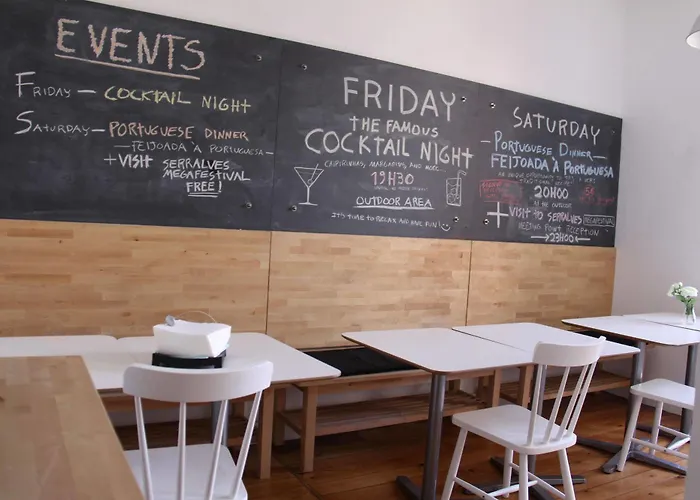 EVENTS
FRIDAY — COCKTAIL NIGHT
SATURDAY — PORTUGUESE DINNER
— FEIJOADA À PORTUGUESA —
+ VISIT SERRALVES
MEGAFESTIVAL
FREE!
FRIDAY
THE FAMOUS
COCKTAIL NIGHT
CAIPIRINHAS, MARGARITAS, AND MORE...
19H30
OUTDOOR AREA
IT'S TIME TO RELAX AND HAVE FUN!
SATURDAY
- PORTUGUESE DINNER -
FEIJOADA À PORTUGUESA
20H00
IN THE OUTDOOR
5€
+ VISIT TO SERRALVES
MEGAFESTIVAL
MEETING POINT RECEPTION
→ 23H00 ←